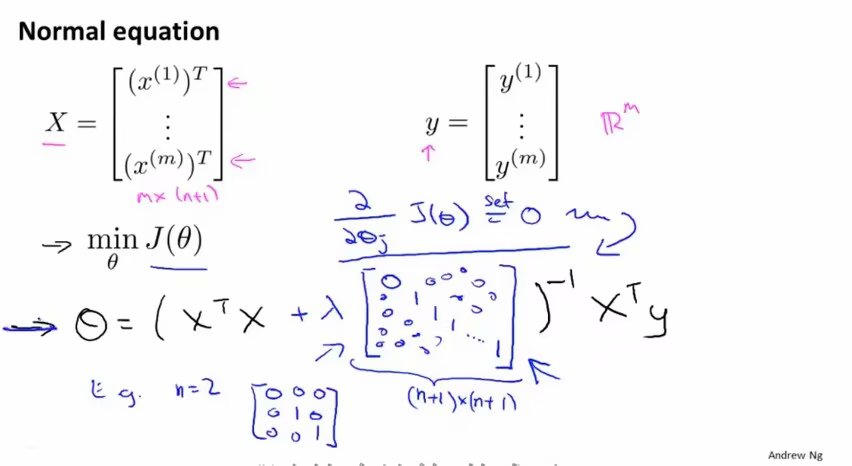 Normal equation
X = [ (x^(1))^T ⋮ (x^(m))^T ] ← ←
m × (n+1)
y = [ y^(1) ⋮ y^(m) ] ℝ^m
∂/∂θj J(θ) set = 0
→ min_θ J(θ)
→ θ = ( X^T X + λ [ 0 0 0 0 0 1 0 0 1 0 1 ... 1 ] )^-1 X^T y
(n+1)×(n+1)
E.g. n=2 [ 0 0 0
0 1 0
0 0 1 ]
Andrew Ng